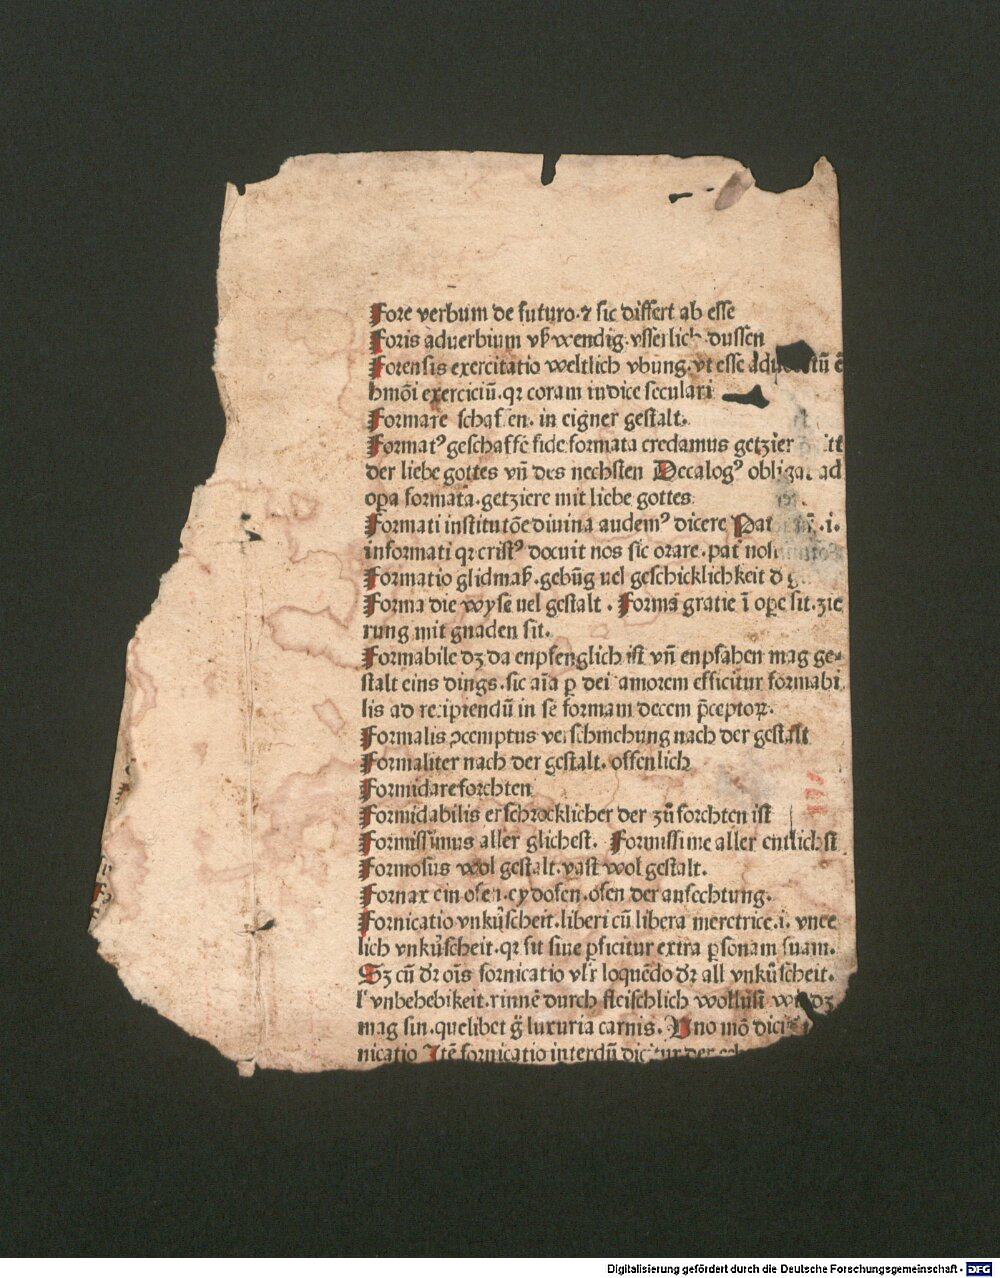 Fore verbum de futuro.⁊ sic differt ab esse
Foris aduerbium vßwendig.vsserlich.dussen
Forensis exercitatio weltlich vbung.vt esse
hmōi exerciciū.qꝛ coram iudice seculari
Formare schaffen. in eigner gestalt.
Formatꝰ geschaffē fide formata credamus getzier
der liebe gottes vñ des nechsten Decalogꝰ obligat ad
opa formata.getziere mit liebe gottes
Formati institutōe diuina audemꝰ dicere .i.
informati qꝛ cristꝰ docuit nos sic orare.pat̄
Formatio glidmaß.gebūg uel geschicklichkeit
Forma die wyse uel gestalt. Forma gratie ī oꝑe sit.zie
rung mit gnaden sit.
Formabile dz da enpfenglich ist vñ enpfahen mag ge-
stalt eins dings.sic aīa ꝑ dei amorem efficitur formabi
lis ad recipiendū in se formam decem p̄ceptoꝝ.
Formalis ↄcemptus verschmehung nach der gestalt
Formaliter nach der gestalt.offenlich
Formidare forchten
Formidabilis erschrocklicher der zů forchten ist
Formissimus aller glichest. Formissime aller entlichst
Formosus wol gestalt.vast wol gestalt.
Fornax ein ofen.cydofen.ofen der anfechtung.
Fornicatio vnkůscheit.liberi cū libera meretrice.i. vnee
lich vnkůscheit.qꝛ sit siue ꝑficitur extra ꝑsonam suam.
Sz cū dr̄ oīs fornicatio vlr̄ loquēdo dr̄ all vnkůscheit.
l' vnbehebikeit.rinnē durch fleischlich wollust
mag sin.quelibet g̊ luxuria carnis. Uno mō
nicatio Itē fornicatio interdū dicitur der
Digitalisierung gefördert durch die Deutsche Forschungsgemeinschaft - DFG